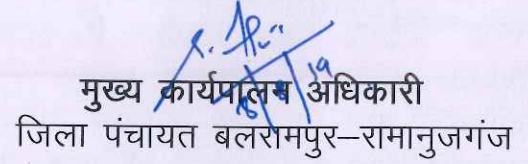 मुख्य कार्यपालन अधिकारी
जिला पंचायत बलरामपुर–रामानुजगंज